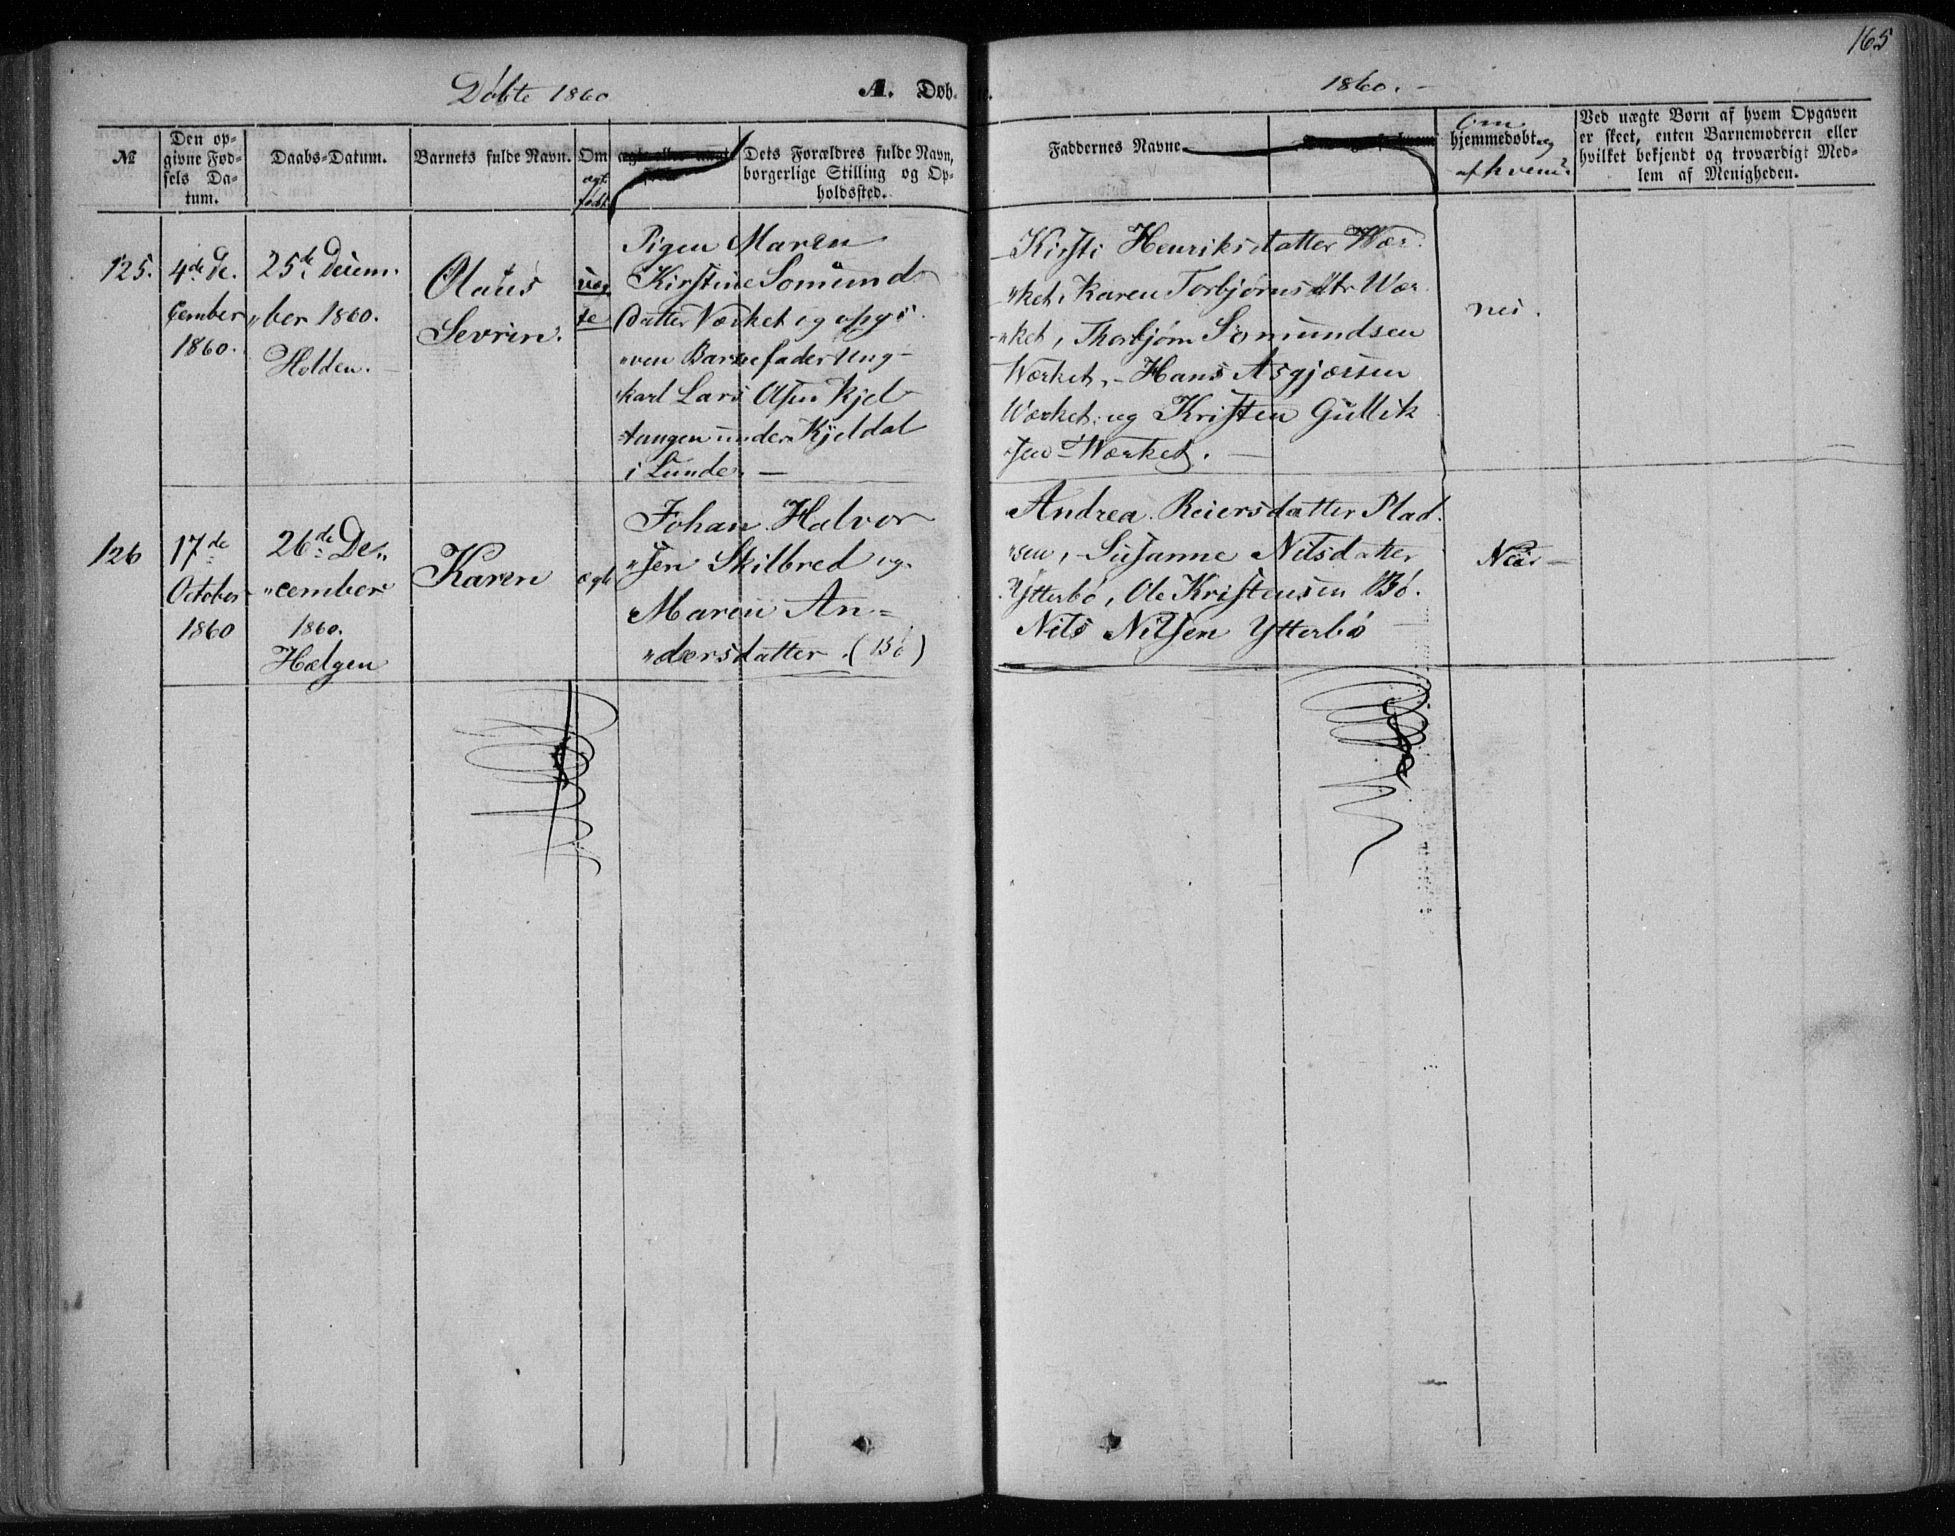 165
Döbte 1860
A. Døb-
te.
1860.-
№
Den op-
givne Fød-
sels Da-
tum.
Daabs-Datum.
Barnets fulde Navn.
Om
ægt.
født.
Dets Forældres fulde Navn,
borgerlige Stilling og Op-
holdssted.
Faddernes Navne
Om
hjemmedøbt og
af hvem?
Ved uægte Børn af hvem Opgaven
er skeet, enten Barnemoderen eller
hvilket bekjendt og troværdigt Med-
lem af Menigheden.
125.
4de De-
cember
1860.
25de Decem-
ber 1860.
Holden.
Olaus
Sevrin.
uæg
te
Pigen Maren
Kirstine Somund-
datter Værket og opgi-
ven Barnefader Ung-
karl Lars Olsen Kjel-
tangen under Kjeldal
i Lunde. —
Kirsti Henriksdatter Vær-
ket, Karen Torbjørnsdtr Vær-
ket, Thorbjørn Somundsen
Værket, - Hans Asgjersen
Værket, og Kristen Gullik-
sen Værket. —
nei.
126
17de
October
1860
26de De-
cember
1860.
Hælgen
Karen
ægte
Johan Halvor-
sen Skilbred og
Maren An-
dersdatter. (Bö)
Andrea Reiersdatter Plad-
sen, - Susanne Nilsdatter
Ytterbö, Ole Kristensen Bö.
Nils Nilsen Ytterbö —
Nei —